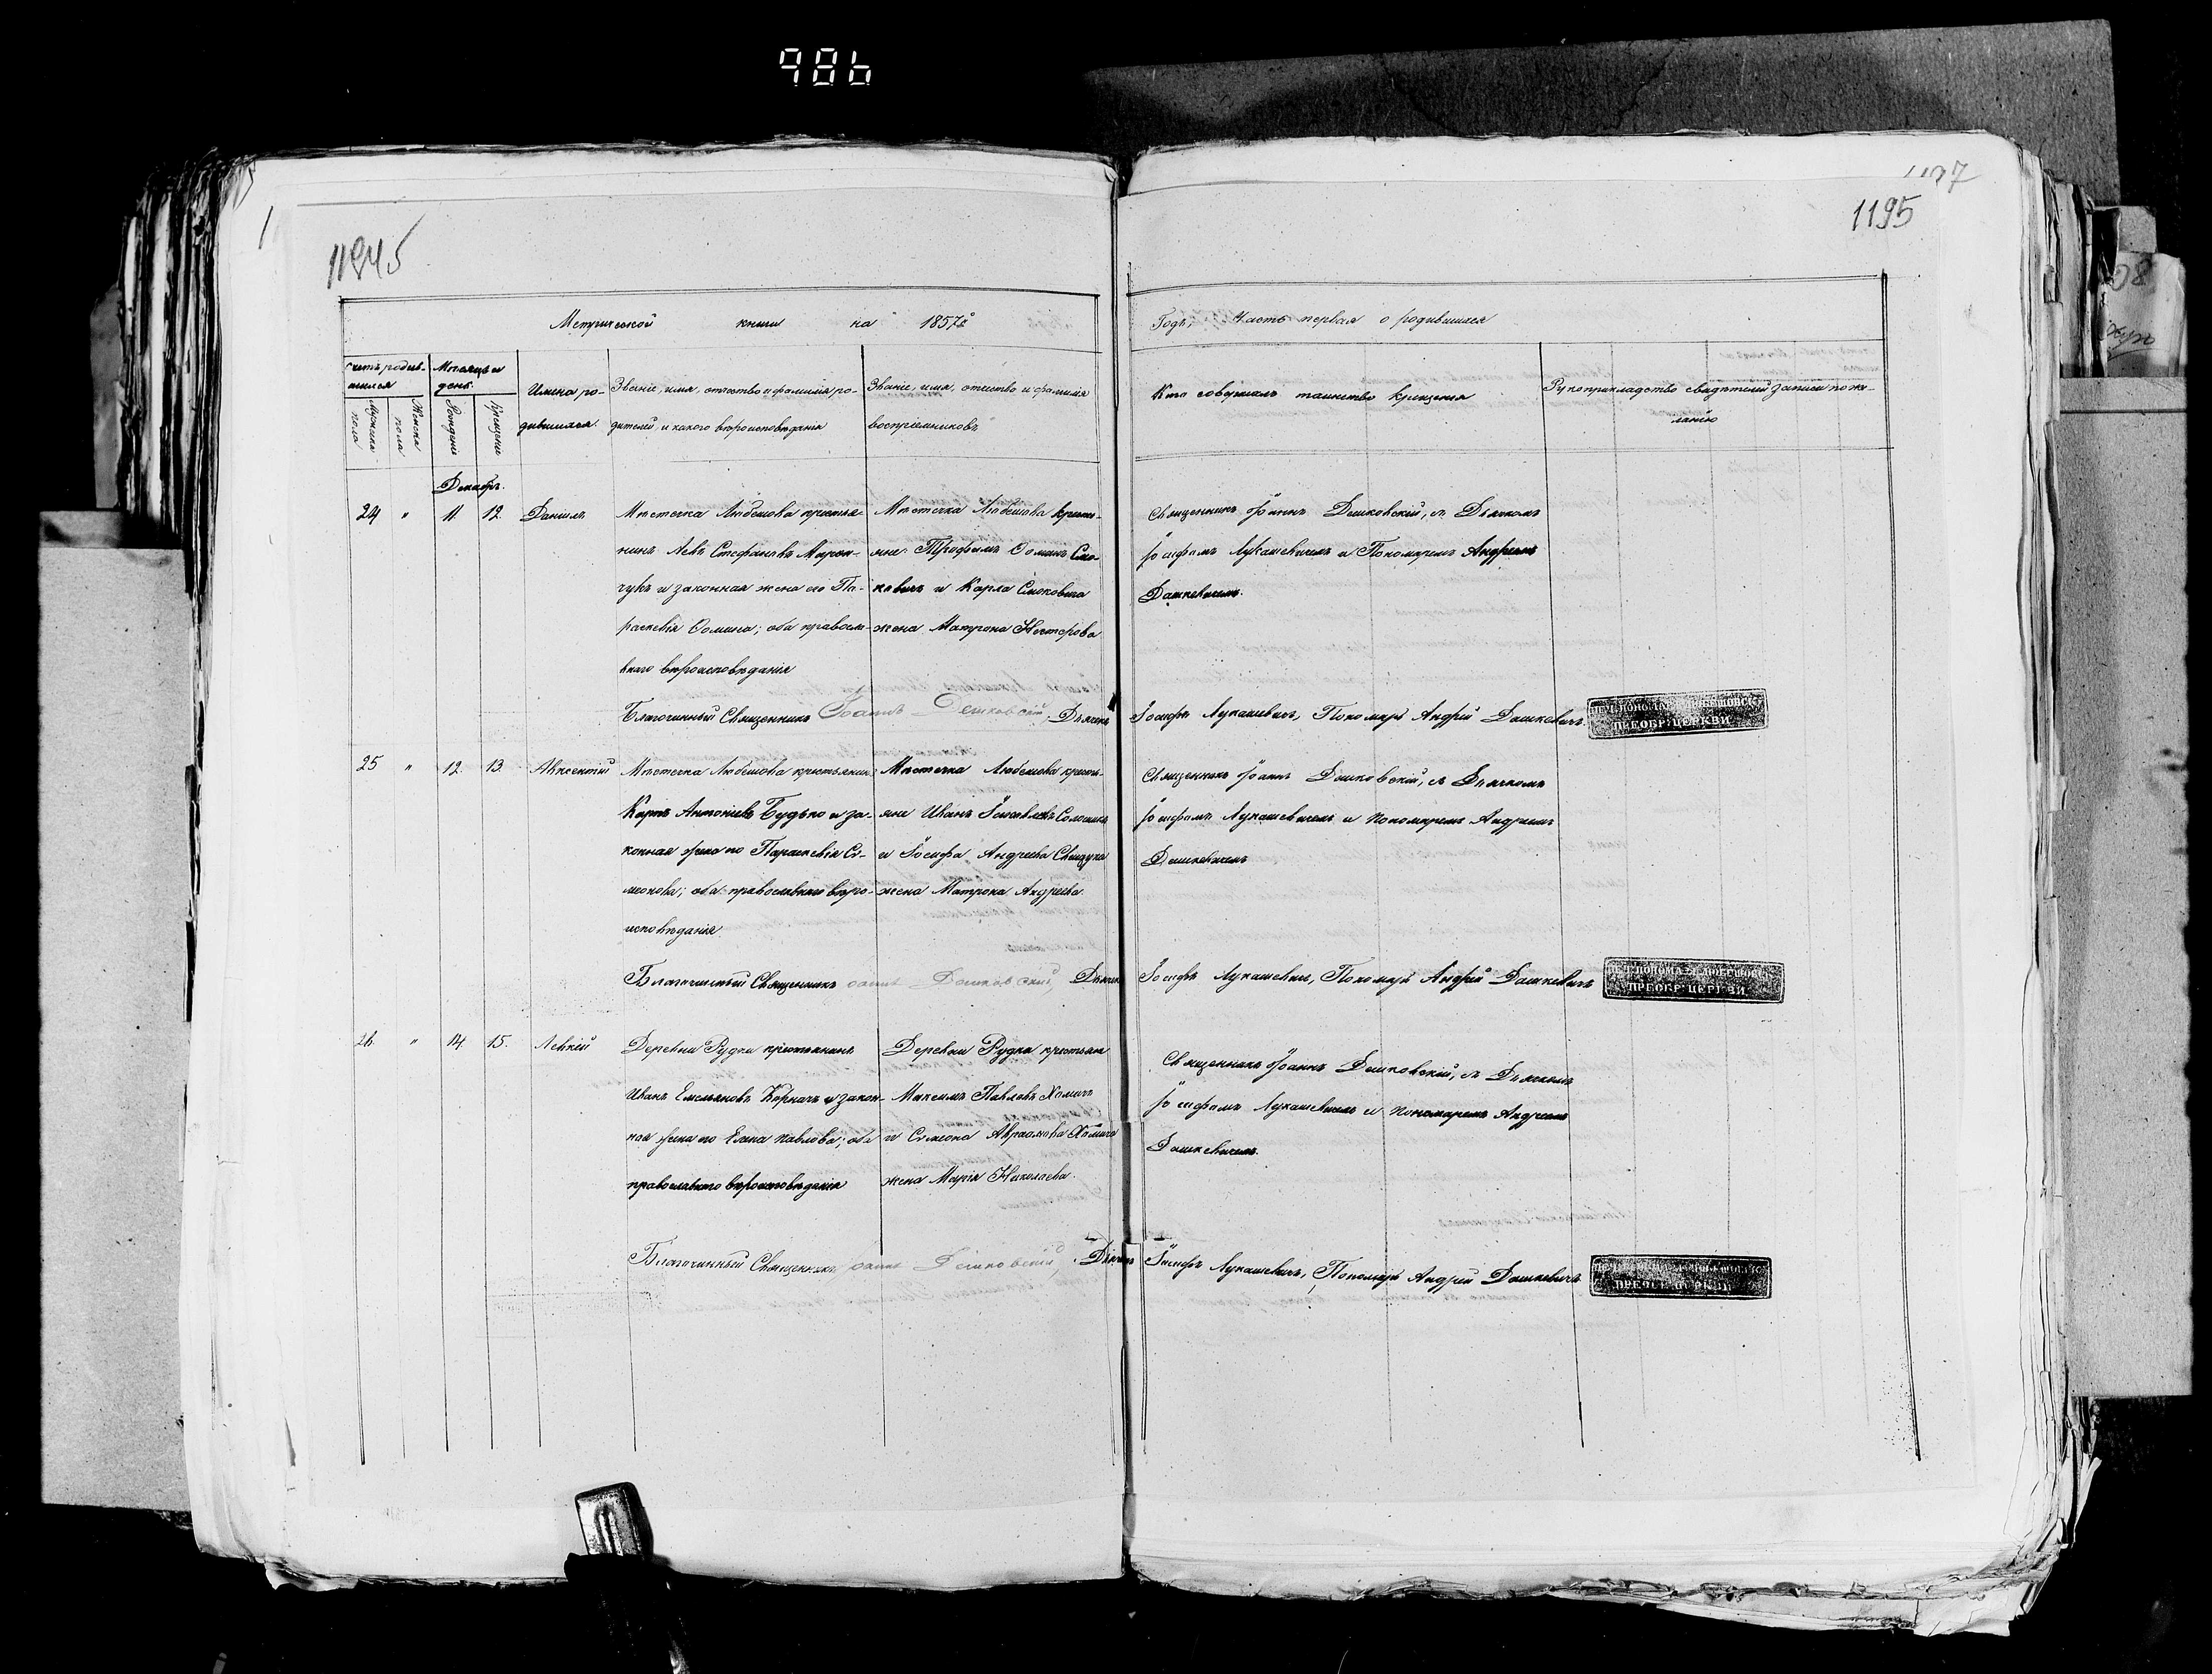 986
1197
1195
11945
Метрической книги на 1857й
Годъ, Часть первая о родившихся
Счетъ родив-
шихся
Мѣсяцъ и
день.
Мужеска
пола
Женска
пола
Рожденія
Крещенія
Имена ро-
дившихся.
Званіе, имя, отчество и фамилія ро-
дителей, и какого вѣроисповѣданія
Званіе, имя, отчество и фамилія
воспріемниковъ
Кто совершалъ таинство крещенія
Рукоприкладство свидѣтелей записи по же-
ланію
Декабрь.
24 " 11. 12. Даніилъ
Мѣстечка Любешова крестья-
нинъ Левъ Стефановъ Марон-
чукъ и законная жена его Па-
раскевія Ѳомина; оба правосла-
внаго вѣроисповѣданія
Мѣстечка Любешова кресть-
яне: Трофимъ Ѳоминъ Смо-
ковичъ и Карла Смоковича
жена Матрона Несторова
Священникъ Іоаннъ Дешковскій, съ Дьячкомъ
Іосифомъ Лукашевичемъ и Пономаремъ Андреемъ
Дашкевичемъ.
Благочинный Священникъ Іоаннъ Дешковскій, Дьячекъ Іосифъ Лукашевичъ, Пономарь Андрей Дашкевичъ
ПРЕОБР: ЦЕРКВИ
25 " 12. 13. Авксентій
Мѣстечка Любешова крестьянинъ
Карпъ Антоніевъ Будько и за-
конная жена его Параскевія Си-
меонова; оба православнаго вѣро-
исповѣданія
Мѣстечка Любешова кресть-
яне Иванъ
и Іосифа Андреева
жена Матрона Андреева.
Священникъ Іоаннъ Дешковскій, съ Дьячкомъ
Іосифомъ Лукашевичемъ и Пономаремъ Андреемъ
Дашкевичемъ
Благочинный Священникъ Іоаннъ Дешковскій, Дьячекъ Іосифъ Лукашевичъ, Пономарь Андрей Дашкевичъ
ПРЕОБР: ЦЕРКВИ
26. " 14 15. Левкій
Деревни Рудки крестьянинъ
Иванъ Емельяновъ Корначъ и закон-
ная жена его Елена Павлова; оба
православнаго вѣроисповѣданія
Деревни Рудки крестьяне
Максимъ Павловъ Хомичъ
и Симеона Авраамова Хомича
жена Марія Николаева.
Священникъ Іоаннъ Дешковскій, съ Дьячкомъ
Іосифомъ Лукашевичемъ и Пономаремъ Андреемъ
Дашкевичемъ.
Благочинный Священникъ Іоаннъ Дешковскій, Дьячекъ Іосифъ Лукашевичъ, Пономарь Андрей Дашкевичъ